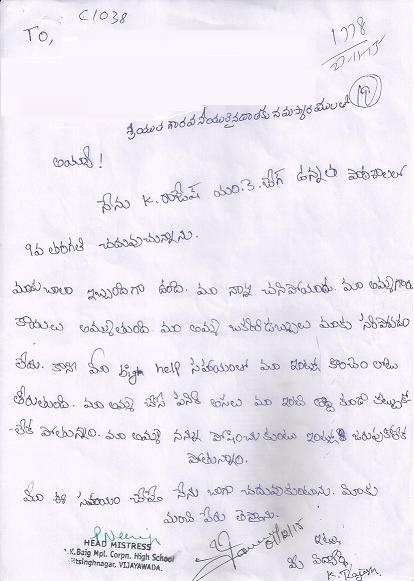 C1038
To,
1778
27-11-15
శ్రీయుత గౌరవనీయులైన దాతకు నమస్కారములతో
అయ్యా!
నేను K. రాజేష్ యం.కె. బేగ్ ఉన్నత పాఠశాలలో
9వ తరగతి చదువుచున్నాను.
మాకు చాలా ఇబ్బందిగా ఉంది. మా నాన్న చనిపోయారు. మా అమ్మగారు
కాయలు అమ్ముతుంది. మా అమ్మ ఒక్కరి డబ్బులు మాకు సరిపోవడం
లేదు. కాని మీ help సహాయంతో మా ఇంట్లో కొంచెం లోటు
తీరుతుంది. మా అమ్మ చేసే పనికి అసలు మా ఇంటి కూడా కట్టుకో
-లేక పోతున్నాం. మా అమ్మ నన్ను పోషించుకుంటు ఇంట్లో జరుపుకోలేక
పోతున్నాం.
మీ ఈ సహాయం చేస్తే నేను బాగా చదువుకుంటాను. మీకు
మంచి పేరు తెస్తాను.
ఇట్లు,
మీ విద్యార్థి
K. Rajesh
HEAD MISTRESS
.K.Baig Mpl. Corpn. High School
itsinghnagar, VIJAYAWADA.